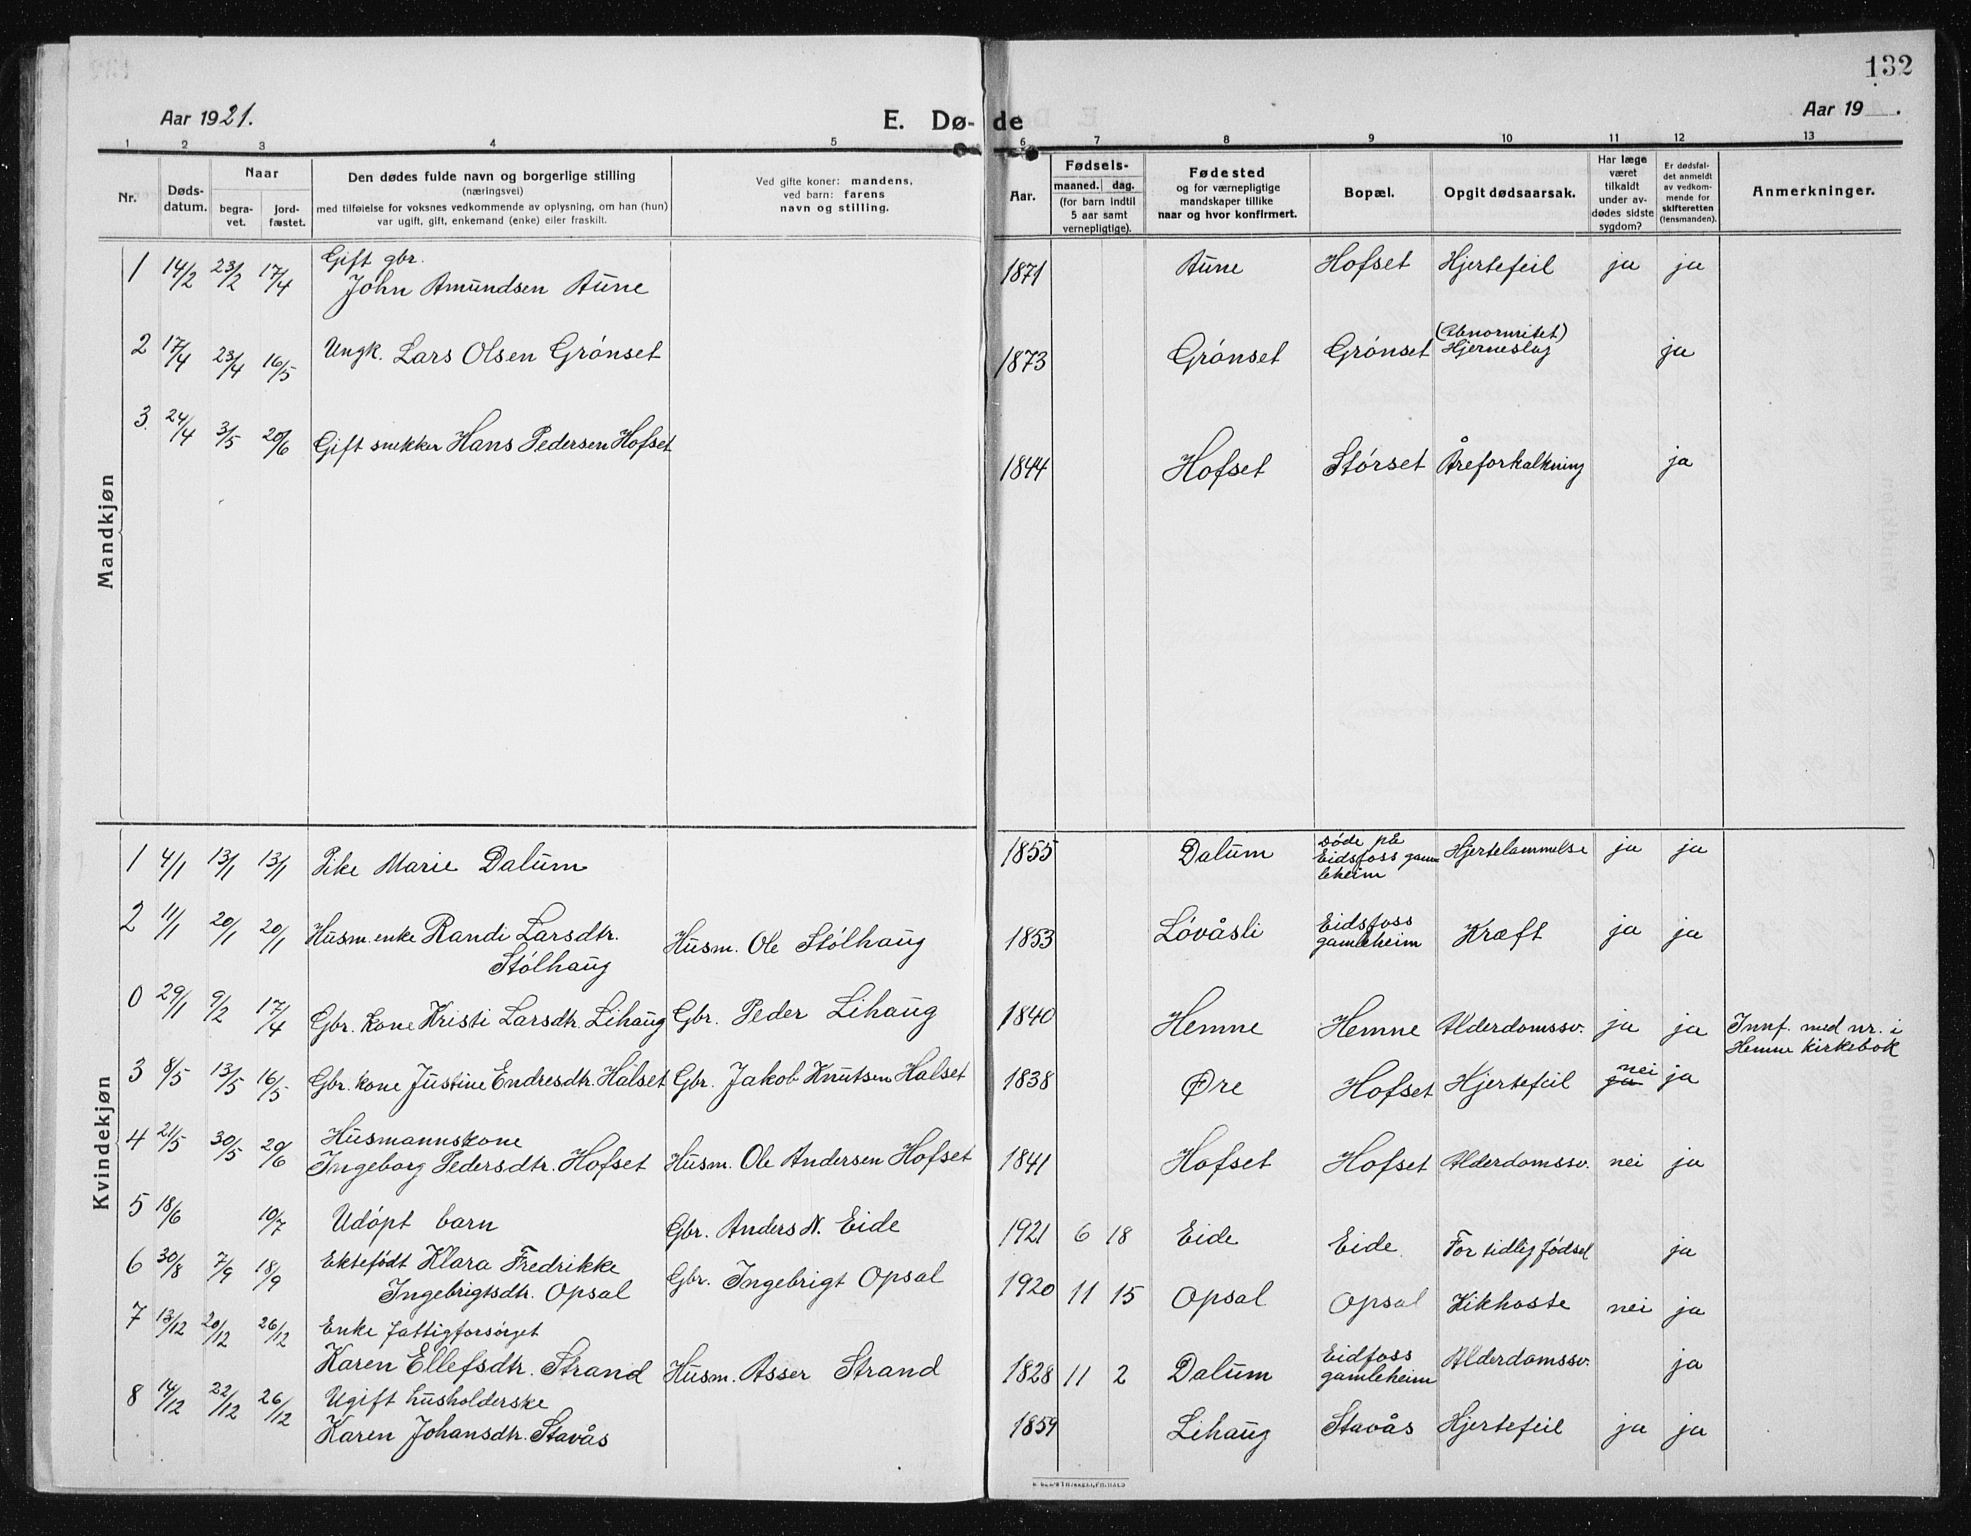 132
Aar 1921.
E. Dø- de
Aar 19 .
1 2 3 4 5 6 7 8 9 10 11 12 13
Nr.
Døds-
datum.
Naar
begra-
vet.
jord-
fæstet.
Den dødes fulde navn og borgerlige stilling
(næringsvei)
med tilføielse for voksnes vedkommende av oplysning, om han (hun)
var ugift, gift, enkemand (enke) eller fraskilt.
Ved gifte koner: mandens,
ved barn: farens
navn og stilling.
Aar.
Fødsels-
maaned. dag.
(for barn indtil
5 aar samt
vernepligtige).
Fødested
og for værnepligtige
mandskaper tillike
naar og hvor konfirmert.
Bopæl.
Opgit dødsaarsak.
Har læge
været
tilkaldt
under av-
dødes sidste
sygdom?
Er dødsfal-
det anmeldt
av vedkom-
mende for
skifteretten
(lensmanden).
Anmerkninger.
Mandkjøn
1 14/2 23/2 17/4 Gift gbr.
John Amundsen Aune 1871 Aune Hofset Hjertefeil ja ja
2 17/4 23/4 16/5 Ungk. Lars Olsen Grónset 1873 Grónset Grónset (Abnormitet)
Hjerneslag ja
3. 24/4 3/5 20/6 Gift snekker Hans Pedersen Hofset 1844 Hofset Stórset Åreforkalkning ja
Kvindekjøn
1 4/1 13/1 13/1 Pike Marie Dalum 1855 Dalum Døde på
Eidsfoss gam
leheim Hjertelammelse ja ja
2 11/1 20/1 20/1 Husm. enke Randi Larsdtr.
Stólhaug Husm. Ole Stólhaug 1853 Lóvåsli Eidsfoss
gamleheim Kræft ja ja
0 29/1 9/2 17/4 Gbr. kone Kristi Larsdtr. Lihaug Gbr. Peder Lihaug 1840 Hemne Hemne Alderdomssv. ja ja Innf. med nr. i
Hemne kirkebok
3 8/5 13/5 16/5 Gbr. kone Justine Endresdtr. Halset Gbr. Jakob Knutsen Halset 1838 Øre Hofset Hjertefeil ja nei ja
4 21/5 30/5 20/6 Husmannskone
Ingeborg Pedersdtr. Hofset Husm. Ole Andersen Hofset 1841 Hofset Hofset Alderdomssv. nei ja
5 18/6 10/7 Udópt barn Gbr. Anders N. Eide 1921 6 18 Eide Eide. For tidlig fødsel ja
6 30/8 7/9 18/9 Ektefódt Klara Fredrikke
Ingebrigtsdtr. Opsal Gbr. Ingebrigt Opsal 1920 11 15 Opsal Opsal Kikhoste nei ja
7 13/12 20/12 26/12 Enke fattigforsórget
Karen Ellefsdtr. Strand Husm. Asser Strand 1828 11 2 Dalum Eidfoss
gamleheim Alderdomssv. ja
8 14/12 22/12 26/12 Ugift husholderske
Karen Johansdtr. Stavås 1859 Lihaug Stavås Hjertefeil ja ja